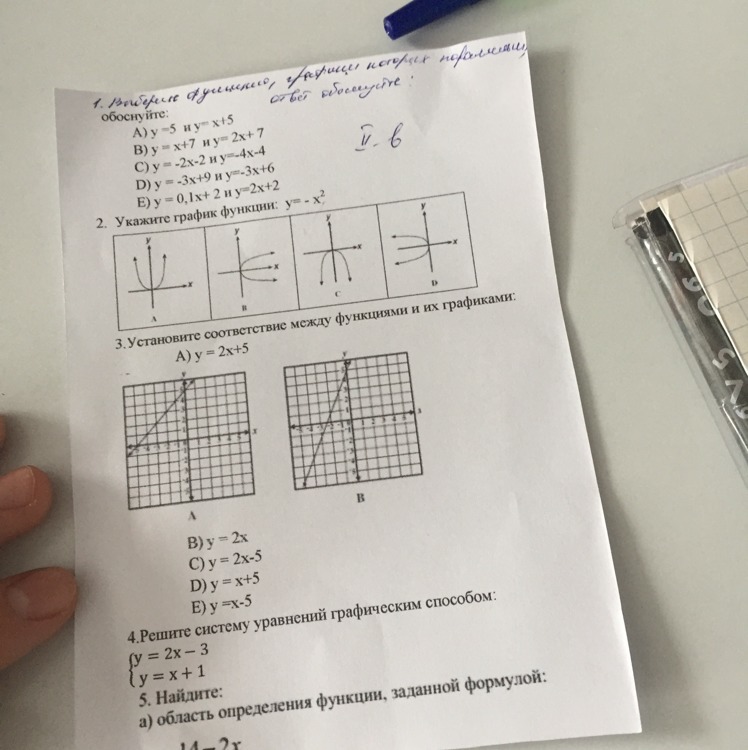 1. Выберите функции, графики которых параллельны,
ответ обоснуйте:
обоснуйте:
A) y =5 и y= x+5
B) y = x+7 и y= 2x+7
C) y = -2x-2 и y=-4x-4
D) y = -3x+9 и y=-3x+6
E) y = 0,1x+ 2 и y=2x+2
II - в
2. Укажите график функции: y= - x²
y
x
A
y
x
B
y
x
C
y
x
D
3.Установите соответствие между функциями и их графиками:
A) y = 2x+5
y
x
A
y
x
B
B) y = 2x
C) y = 2x-5
D) y = x+5
E) y =x-5
4.Решите систему уравнений графическим способом:
{y = 2x – 3
{y = x + 1
5. Найдите:
а) область определения функции, заданной формулой:
14-2x